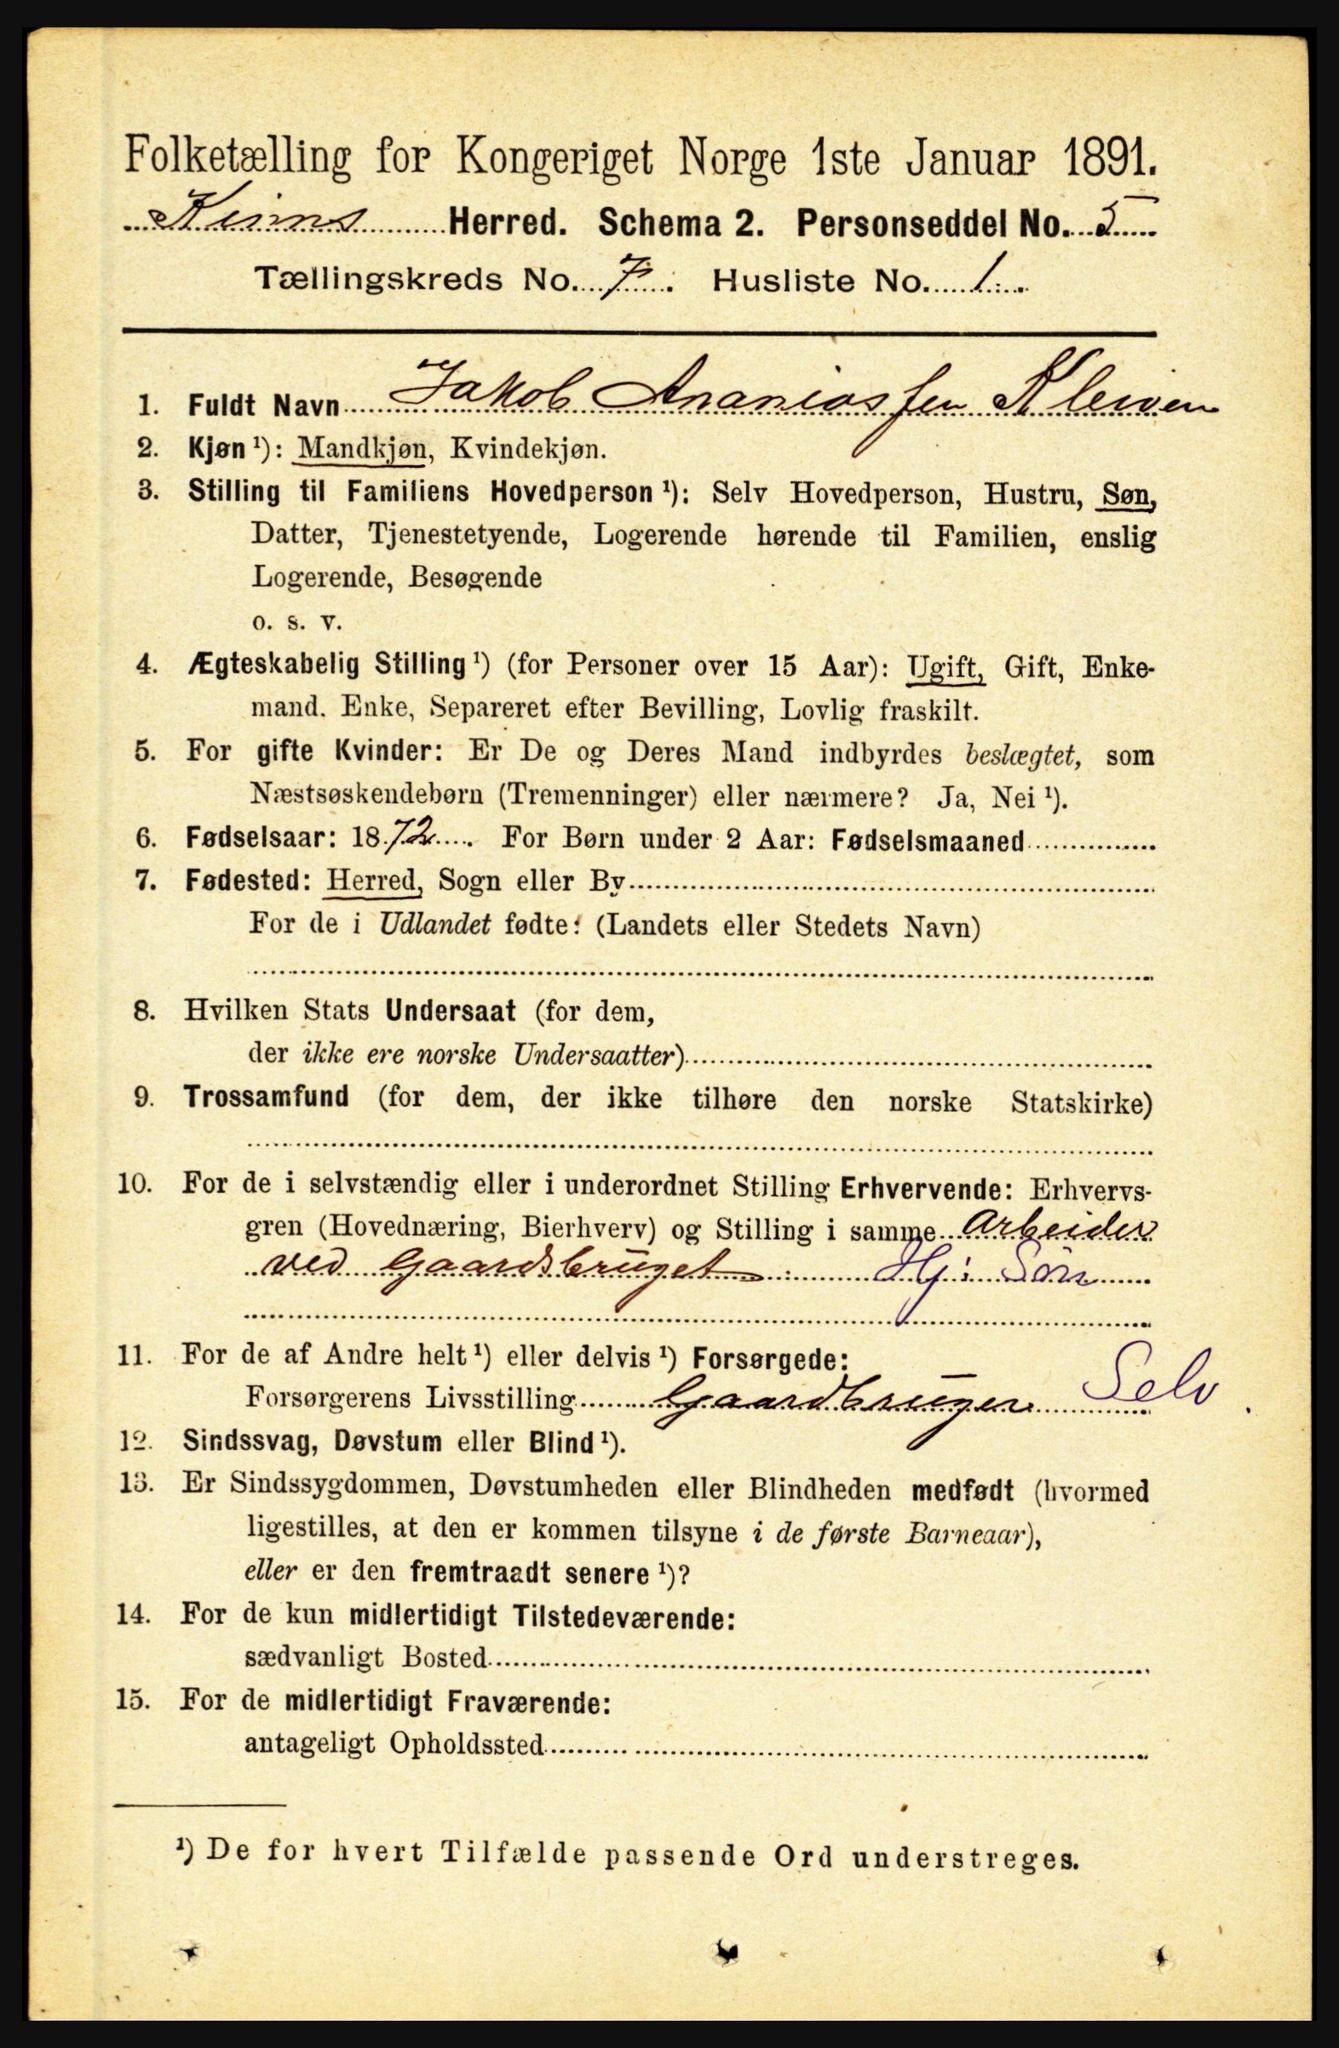 Folketælling for Kongeriget Norge 1ste Januar 1891.
Kinns Herred. Schema 2. Personseddel No. 5
Tællingskreds No. 7. Husliste No. 1.
1. Fuldt Navn Jakob Ananiassen Kleiven
2. Kjøn ¹): Mandkjøn, Kvindekjøn.
3. Stilling til Familiens Hovedperson ¹): Selv Hovedperson, Hustru, Søn,
Datter, Tjenestetyende, Logerende hørende til Familien, enslig
Logerende, Besøgende
o. s. v.
4. Ægteskabelig Stilling ¹) (for Personer over 15 Aar): Ugift, Gift, Enke-
mand. Enke, Separeret efter Bevilling, Lovlig fraskilt.
5. For gifte Kvinder: Er De og Deres Mand indbyrdes beslægtet, som
Næstsøskendebørn (Tremenninger) eller nærmere? Ja, Nei ¹).
6. Fødselsaar: 1872. For Børn under 2 Aar: Fødselsmaaned
7. Fødested: Herred, Sogn eller By
For de i Udlandet fødte: (Landets eller Stedets Navn)
8. Hvilken Stats Undersaat (for dem,
der ikke ere norske Undersaatter)
9. Trossamfund (for dem, der ikke tilhøre den norske Statskirke)
10. For de i selvstændig eller i underordnet Stilling Erhvervende: Erhvervs-
gren (Hovednæring, Bierhverv) og Stilling i samme Arbeider
ved Gaardsbruget. Hj: Søn
11. For de af Andre helt ¹) eller delvis ¹) Forsørgede:
Forsørgerens Livsstilling Gaardbruger Selv
12. Sindssvag, Døvstum eller Blind ¹).
13. Er Sindssygdommen, Døvstumheden eller Blindheden medfødt (hvormed
ligestilles, at den er kommen tilsyne i de første Barneaar),
eller er den fremtraadt senere ¹)?
14. For de kun midlertidigt Tilstedeværende:
sædvanligt Bosted
15. For de midlertidigt Fraværende:
antageligt Opholdssted
¹) De for hvert Tilfælde passende Ord understreges.